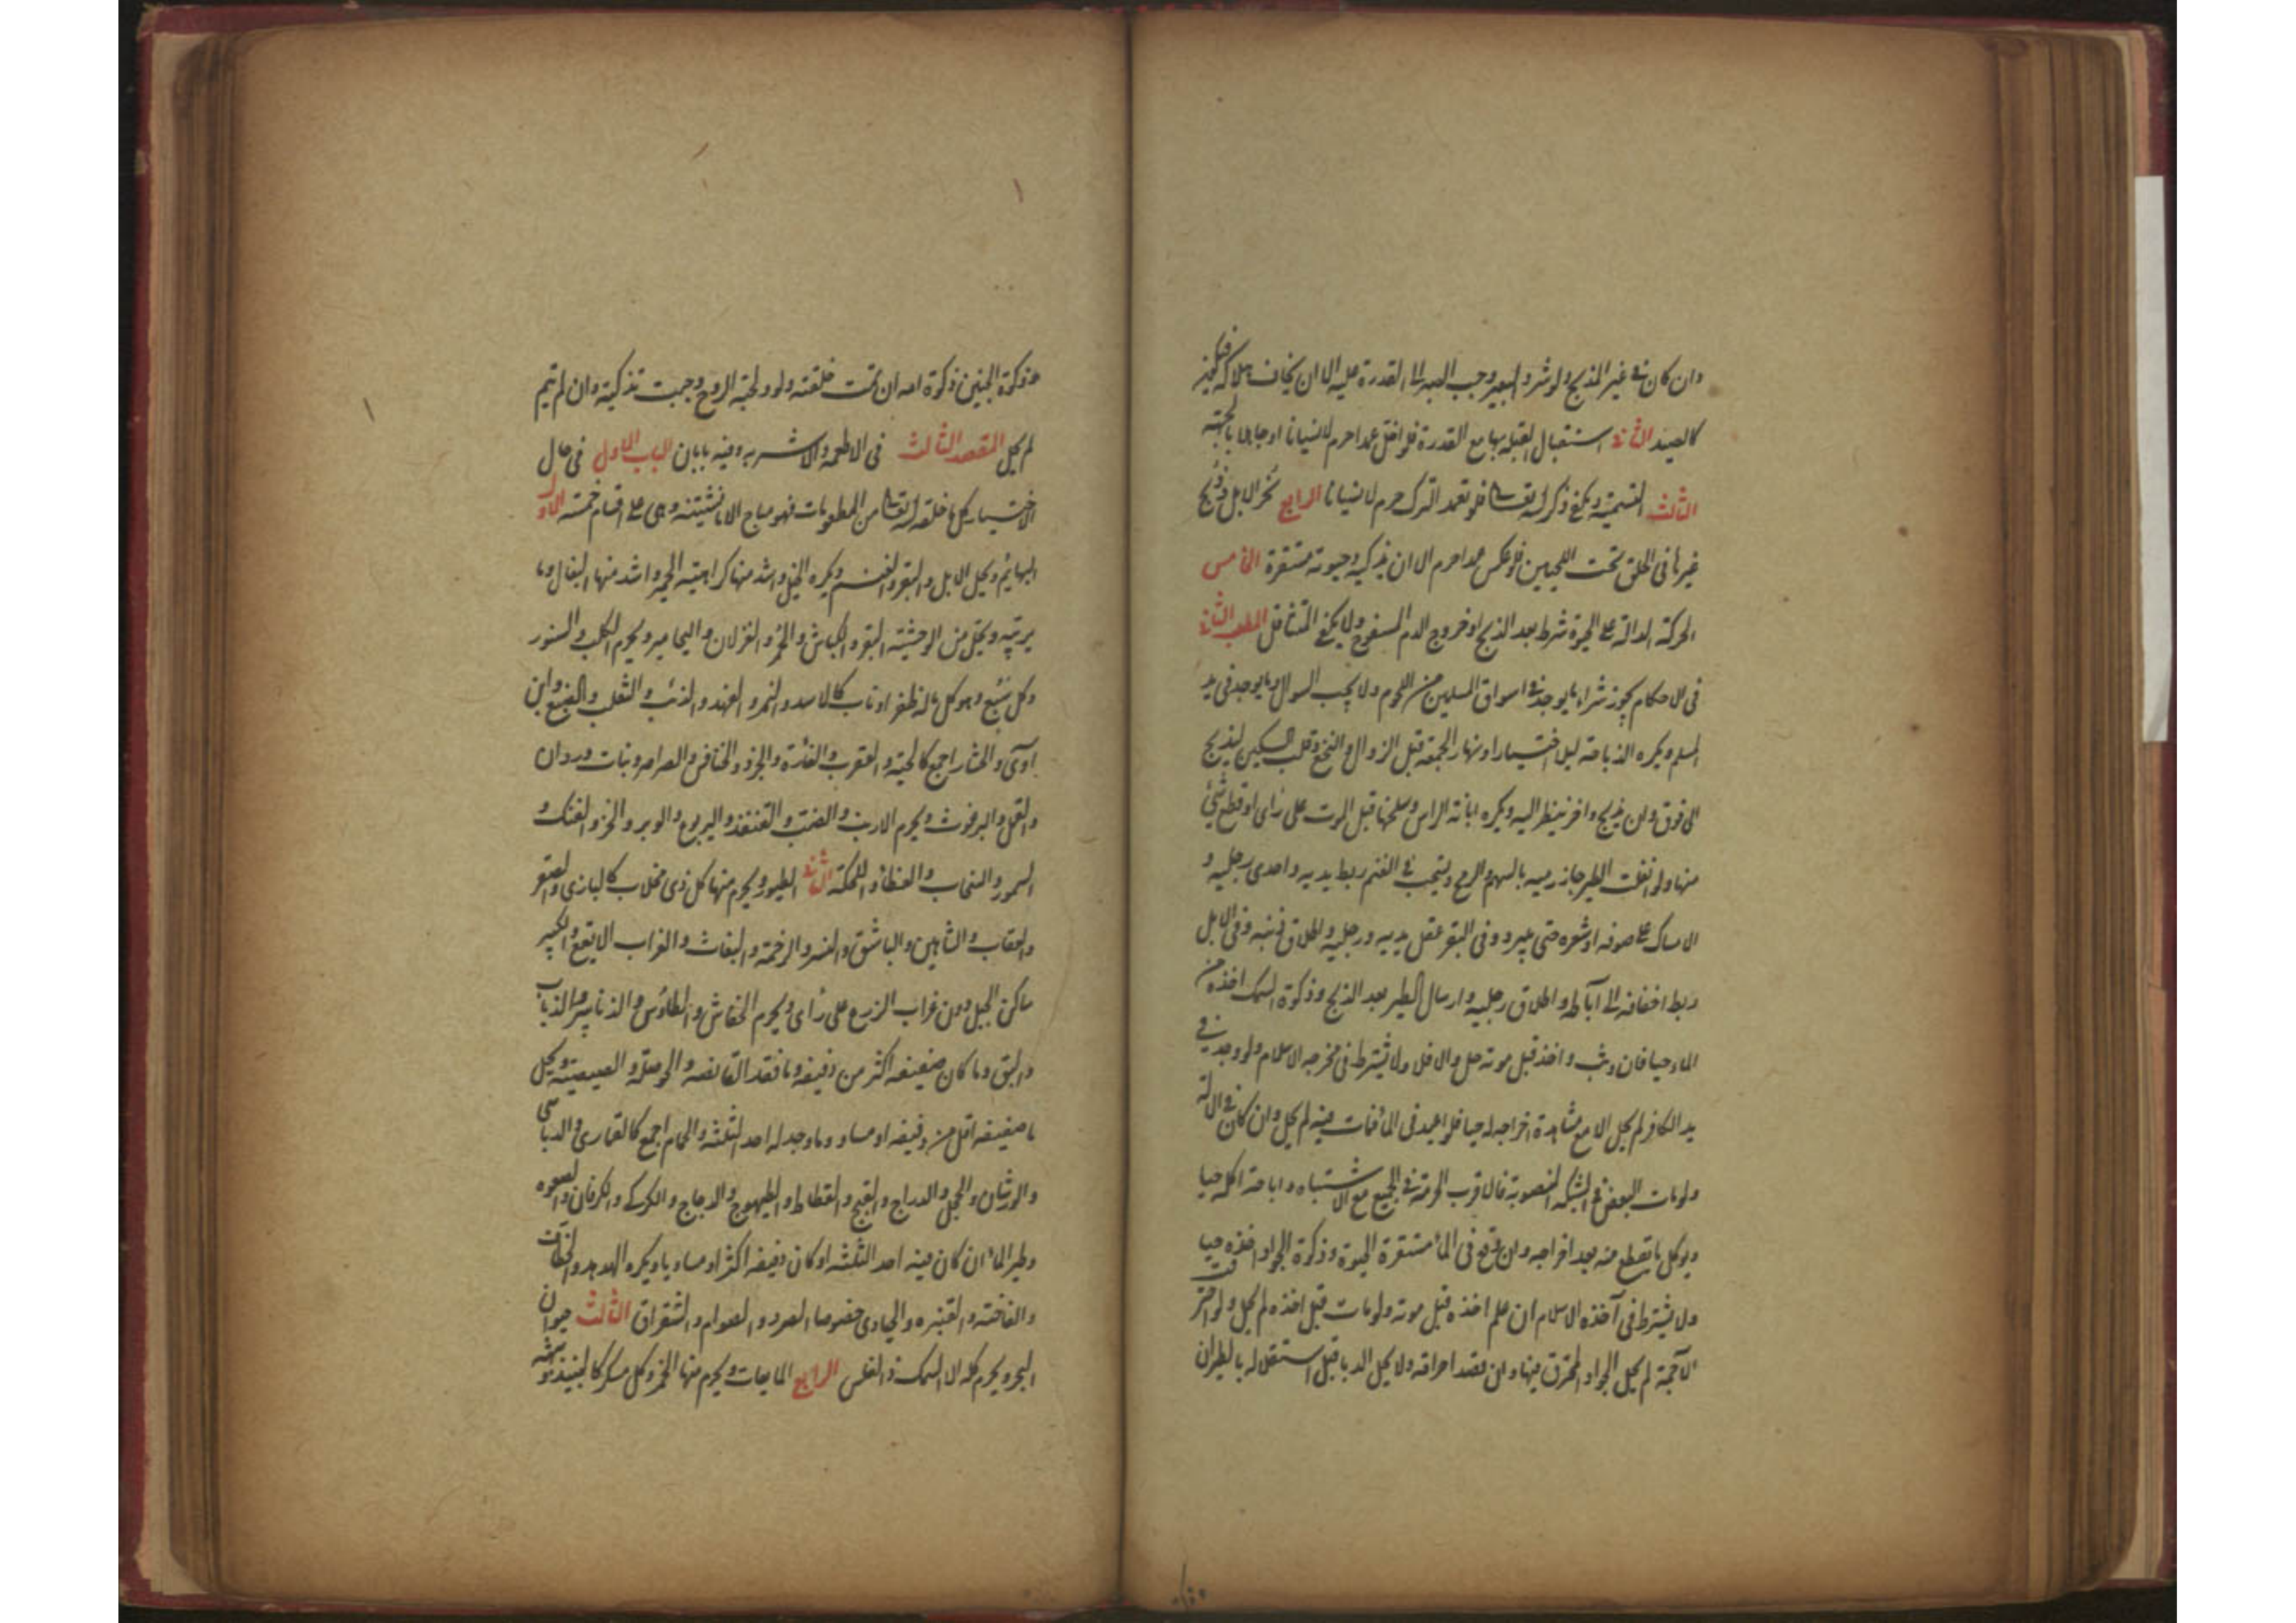 وان كان فى غير المذبح ولو شرد البعير وجب الصبر الى القدرة عليه الا ان يخاف هلاكه فيجوز قتله
كالصيد الثانى استقبال القبلة بها مع القدرة فلو اخل عمدا حرم لا نسيانا او جاهلا بالجهة
الثالث التسمية ويكفى ذكر الله تعالى فلو تعمد الترك حرم لا نسيانا الرابع نحر الابل وذبح
غيرها فى الحلق تحت اللحيين فلو عكس عمدا حرم الا ان يذكيه وحيوته مستقرة الخامس
الحركة الدالة على الحيوة شرط بعد الذبح او خروج الدم المسفوح ولا يكفى المتثاقل المطلب الثانى
فى الاحكام يجوز شراء ما يوجد فى اسواق المسلمين من اللحوم ولا يجب السوال وما يوجد فى يد
المسلم ويكره الذباحة ليلا اختيارا ونهار الجمعة قبل الزوال والنخع وقلب السكين ليذبح
الى فوق وان يذبح واخر ينظر اليه ويكره ابانة الراس وسلخها قبل الموت على راى او قطع شئ
منها ولو انفلت الطير جاز رميه بالسهم والرمح ويستحب فى الغنم ربط يديه واحدى رجليه و
الامساك على صوفه او شعره حتى يبرد وفى البقر عقل يديه ورجليه واطلاق ذنبه وفى الابل
ربط اخفافه الى آباطه واطلاق رجليه وارسال الطير بعد الذبح وذكوة السمك اخذه من
الماء حيا فان وثب واخذ قبل موته حل والا فلا ولا يشترط فى مخرجه الاسلام ولو وجد فى
يد الكافر لم يحل الا مع مشاهدة اخراجه له حيا فلو اعيد فى الماء فمات فيه لم يحل وان كان فى الالة
ولو مات البعض فى الشبكة المنصوبة فالاقرب الحرمة فى الجميع مع الاشتباه واباحة اكله حيا
ويوكل ما يقطع منه بعد اخراجه وان وقع فى الماء مستقرة الحيوة وذكوة الجراد اخذه حيا
ولا يشترط فى آخذه الاسلام ان علم اخذه قبل موته ولو مات قبل اخذه لم يحل ولو احترقت
الآجمة لم يحل الجراد المحترق فيها وان قصد احراقه ولا يحل الدبا قبل استقلاله بالطيران
وذكوة الجنين ذكوة امه ان تمت خلقته ولو ولجته الروح وجبت تذكيته وان لم يتم
لم يحل المقصد الثالث فى الاطعمة والاشربه وفيه بابان الباب الاول فى حال
الاختيار كل ما خلقه الله تعالى من المطعومات فهو مباح الا ما نستثنه وهى على اقسام خمسة الاول
البهائم ويحل الابل والبقر والغنم ويكره الخيل واشد منها كراهيته الحمير واشد منها البغال وما
يربيه ويحل من الوحشية البقر والكباش والحمر والغزلان واليحامير ويحرم الكلب والسنور
وكل سبع وهو كل ماله ظفر او ناب كالاسد والنمر والفهد والذئب والثعلب والضبع وابن
آوى والحشار اجمع كالحية والعقرب والفأرة والجرذ والخنافس والصراصر وبنات وردان
والقمل والبرغوث ويحرم الارنب والضب والقنفذ واليربوع والوبر والخز والفنك و
السمور والسنجاب والعظاء واللحكة الثانى الطيور ويحرم منها كل ذى مخلاب كالبازى والصقر
والعقاب والشاهين والباشق والنسر والرخمة والبغاث والغراب الابقع والكبير
ساكن الجبل دون غراب الزرع على رأى ويحرم الخفاش والطاوس والزنابير والذباب
والبق وما كان صفيفه اكثر من دفيفه وما فقد القانصه والحوصله والصيصية ويحل
ما صفيفه اقل من دفيفه او مساو وما وجد له احد الثلثه والحمام اجمع كالقمارى والدباسى
والورشان والحجل والدراج والقبج والقطا والطيهوج والدجاج والكركى والكروان والصعوه
وطير الماء ان كان فيه احد الثلثه او كان دفيفه اكثر او مساويا ويكره الهدهد والخطاف
والفاخته والقبره والحبارى خصوصا الصرد والصوام والشقراق الثالث حيوان
البحر ويحرم كله الا السمك ذا الفلس الرابع المايعات ويحرم منها الخمر وكل مسكر كالنبيذ وشبهه